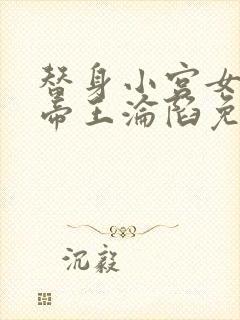 替身小宫女
帝王沦陷免
沉毅